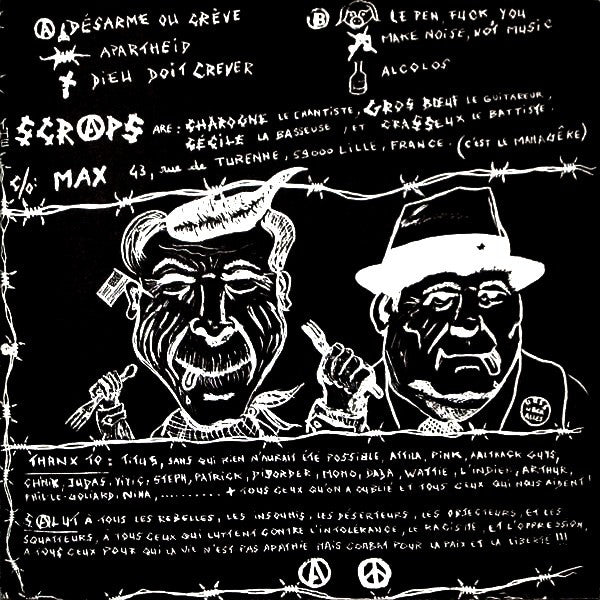 Ⓐ DÉSARME OU CRÈVE
APARTHEID
DIEU DOIT CREVER
Ⓑ LE PEN, FUCK, YOU
MAKE NOISE, NOT MUSIC
ALCOLOS
SCRⒶPS ARE : CHAROGNE LE CHANTISTE, GROS BŒUF LE GUITAREUR,
CÉCILE LA BASSEUSE, ET CRASSEUX LE BATTISTE.
C/O: MAX 43, rue de TURENNE, 59000 LILLE, FRANCE. (C'EST LE MANAGÊKE)
ÜBER ALLES
THANX TO : TITUS, SANS QUI RIEN N'AURAIT ÉTÉ POSSIBLE, ATTILA, PINK, GUYS,
JUDAS, STEPH, PATRICK, DISORDER, MOMO, BABA, WATTIE, L'INDIEN, ARTHUR,
NINA, .......... + TOUS CEUX QU'ON A OUBLIÉ ET TOUS CEUX QUI NOUS AIDENT!
SⒶLUT À TOUS LES REBELLES, LES INSOUMIS, LES DÉSERTEURS, LES OBJECTEURS, ET LES
SQUATTEURS, À TOUS CEUX QUI LUTTENT CONTRE L'INTOLÉRANCE, LE RACISME, ET L'OPPRESSION,
À TOUS CEUX POUR QUI LA VIE N'EST PAS APATHIE MAIS COMBAT POUR LA PAIX ET LA LIBERTÉ !!!
Ⓐ ☮